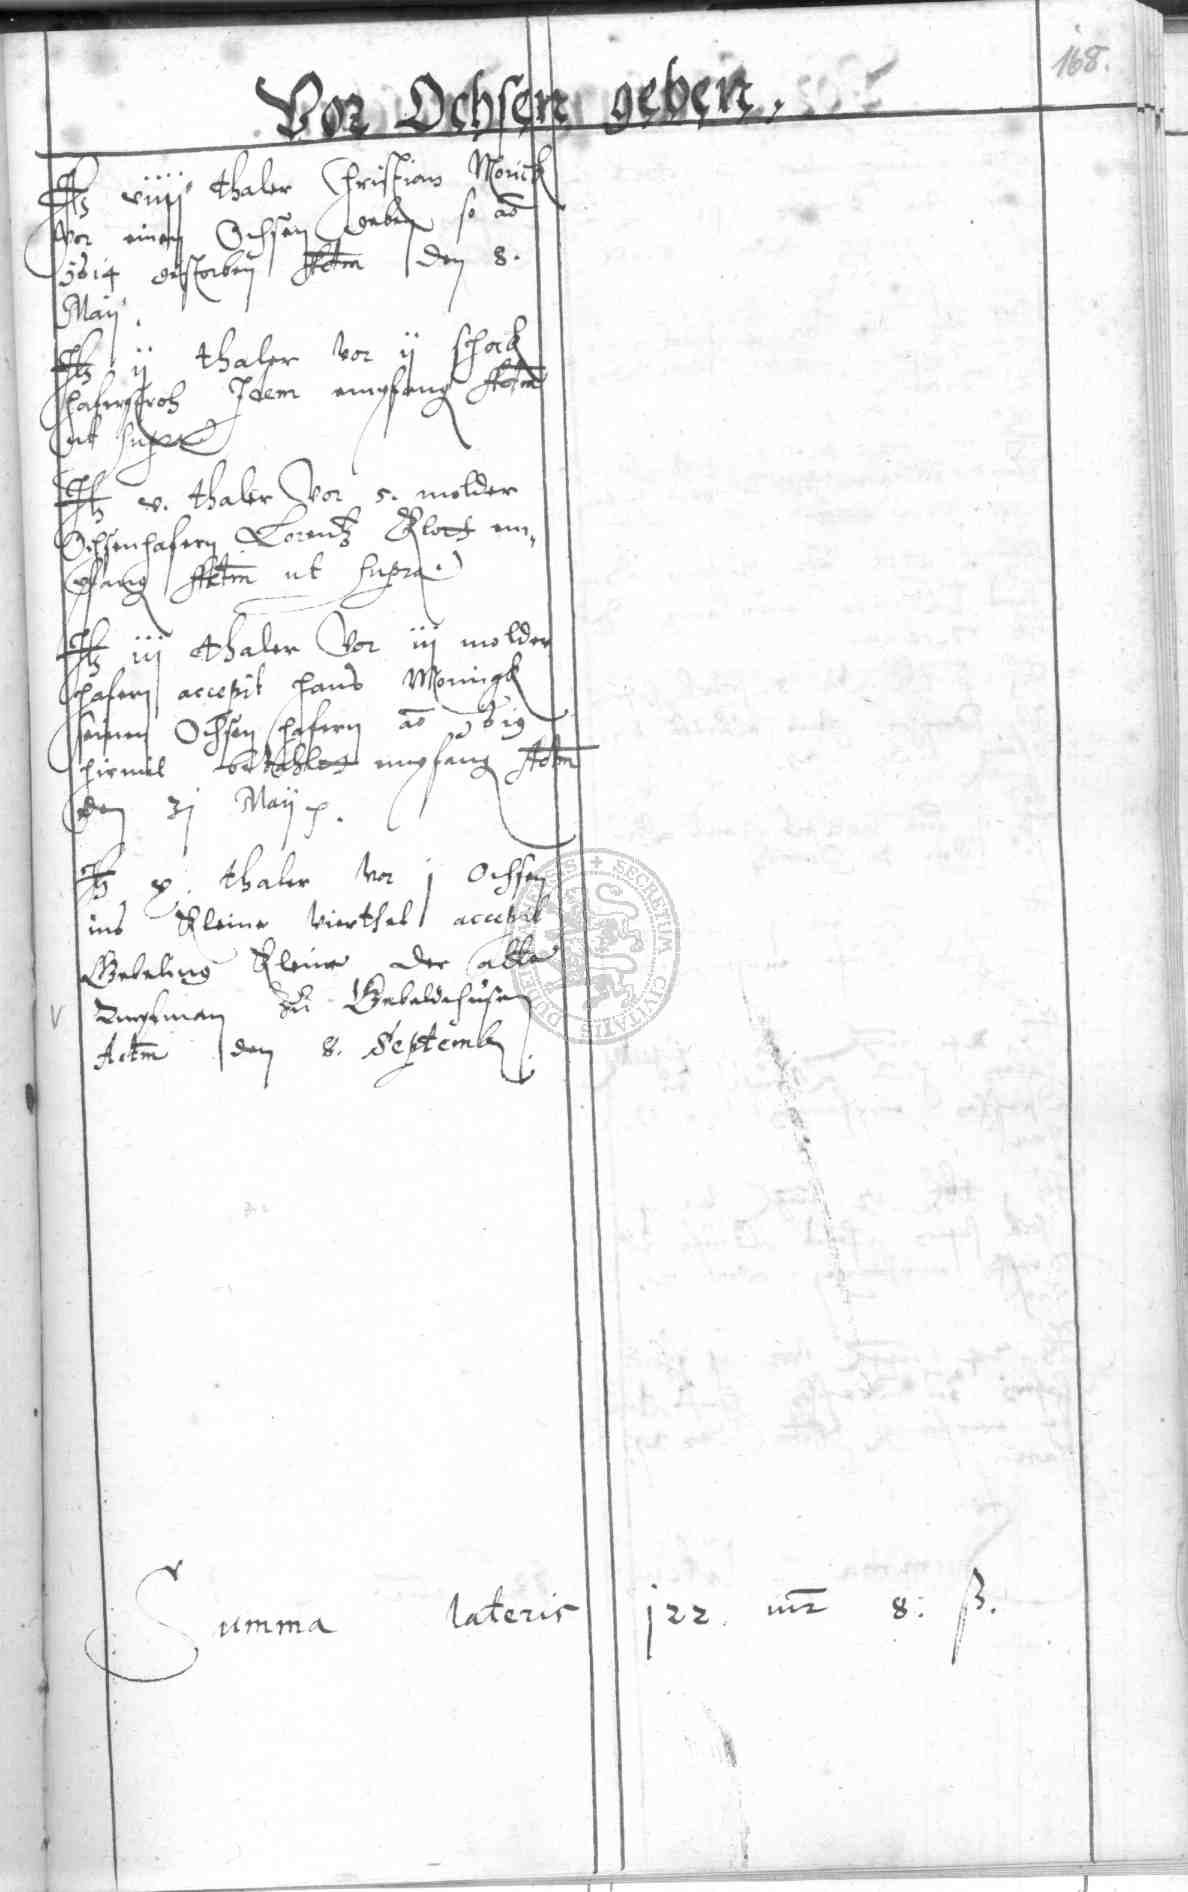 168.
Vor Ochsen geben,
Itz viiij thaler Christian Morick
vor einen Ochsen geben so ao
1614 gestorben Actm den 8.
Maij.
Itz ij thaler vor ij schock
haferstroh Idem empfang Actm
ut supra
Itz v. thaler vor 5. molder
Ochsenhafern Lorentz Klott em,
pfang Actm ut supra.
Itz iij thaler vor iij molder
hafern accepit Hans Moningk
seinen Ochsen hafern ao
hiemit bezahlet empfang Actm
den 31 Maij
Itz x. thaler vor j Ochsen
ins Kleine vierthel accepit
Gebeling Kleine der alte
zu Gebeldehusen
Actm den 8. Septemb.
Summa lateris 122 mr 8. ß.
SECRETUM CIVITATIS